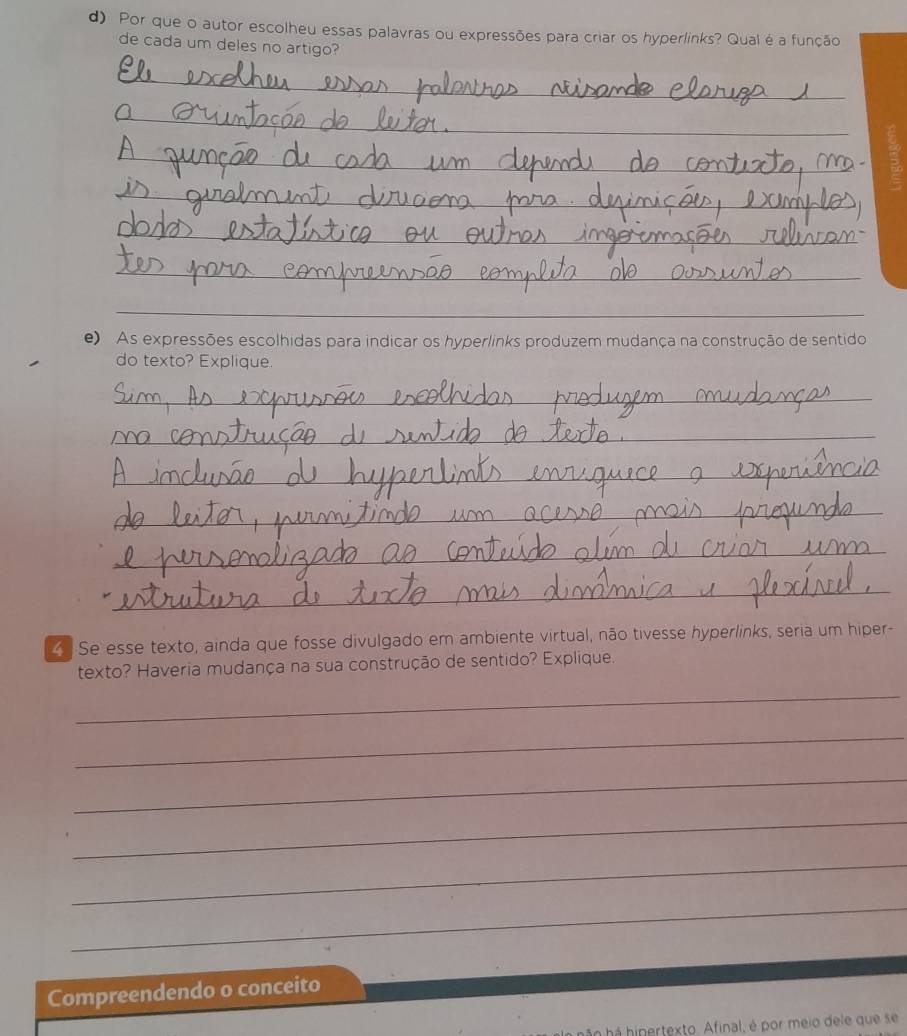 d) Por que o autor escolheu essas palavras ou expressões para criar os hyperlinks? Qual é a função
de cada um deles no artigo?
Ele escolheu essas palavras visando clareza e
a orientação do leitor.
A função de cada um depende do contexto, ma-
is geralmente direciona para definições, exemplos,
dados estatístico ou outras informações relevan-
tes para compreensão completa do assuntos
Linguagens
e) As expressões escolhidas para indicar os hyperlinks produzem mudança na construção de sentido
do texto? Explique.
Sim, As expressões escolhidas produzem mudanças
na construção de sentido do texto.
A inclusão de hyperlinks enriquece a experiência
do leitor, permitindo um acesso mais profundo
e personalizado ao conteúdo além de criar uma
estrutura de texto mais dinâmica e flexível.
4 Se esse texto, ainda que fosse divulgado em ambiente virtual, não tivesse hyperlinks, seria um hiper-
texto? Haveria mudança na sua construção de sentido? Explique.
Compreendendo o conceito
não há hipertexto. Afinal, é por meio dele que se